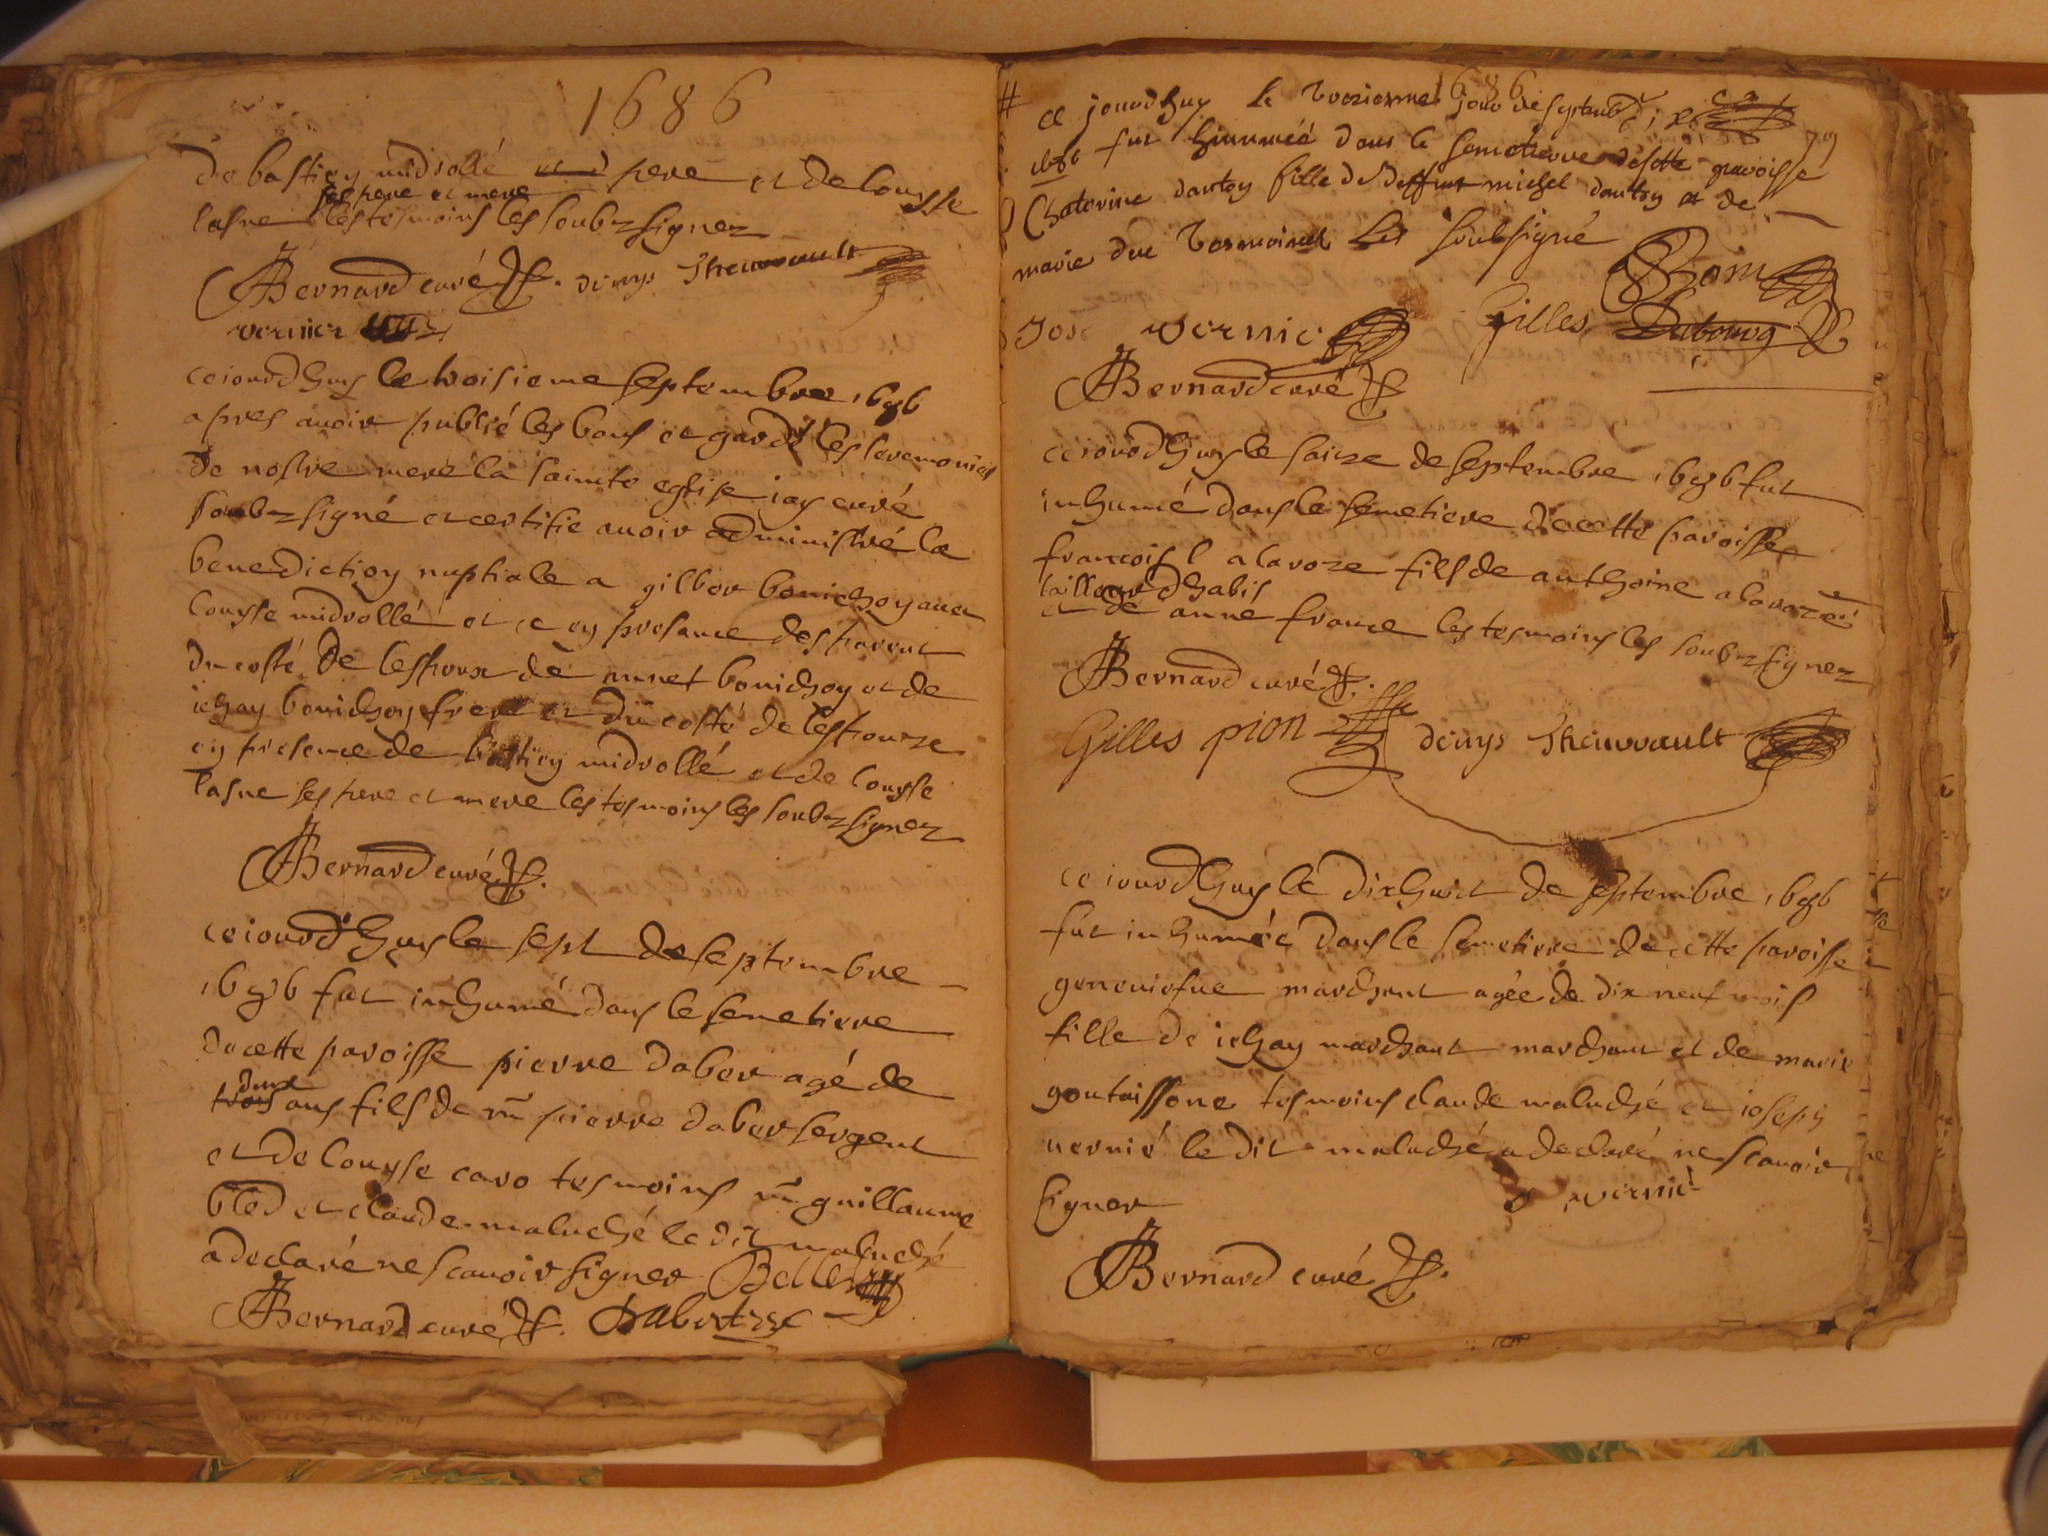 1686
De bastien midrollé pere et de Louyse
ses pere et mere
lasne les tesmoins les soubzsignez
Bernard curé denys Theurault
vernier
ceiourdhuy le troisieme septembre 1686
apres auoir publié les bans et gardé les seremonies
de nostre mere la saincte eglise iay curé
soubzsigné et certifie auoir administré la
benediction nuptiale a gilber bonichon auec
Louyse midrollé et ce en presance des parent
du costé de lespoux de bonichon et de
iehan bonichon frere et du costé de lespouze
en presence de bastien midrollé et de Louyse
lasne ses pere et mere les tesmoins les soubzsignez
Bernard curé
ceiourdhuy le sept de septembre
1686 fut inhumé dans le semetiere
de cette paroisse pierre daber agé de
deux
trois ans fils de m pierre daber sergent
et de Louyse caro tesmoins m guillaume
bled et claude maluché le dit maluché
a declaré ne scauoir signer
Bernard curé
1686
ce jourdhuy le jour de septemb
1686 fut dans le semetierre desette paroisse
Chaterine dantoy fille de deffunt michel dantoy et de
marie duc soubsigné
vernie Gilles Dubourg
Bernard curé
ceiourdhuy le saize de septembre 1686 fut
inhumé dans le semetiere de cette paroisse
francois alaroze fils de anthoine alaroze
tailleur dhabis
et de anne france les tesmoins les soubzsignez
Bernard curé
Gilles pion denys Theurault
ceiourdhuy le dixhuict de septembre 1686
fut inhumée dans le semetiere de cette paroisse
geneuiefue marchant agée de dix neuf mois
fille de iehan marchant marchant et de marie
goutaissone tesmoins claude maluché et ioseph
uernié le dit maluché a declaré ne scauoir
signer
vernie
Bernard curé